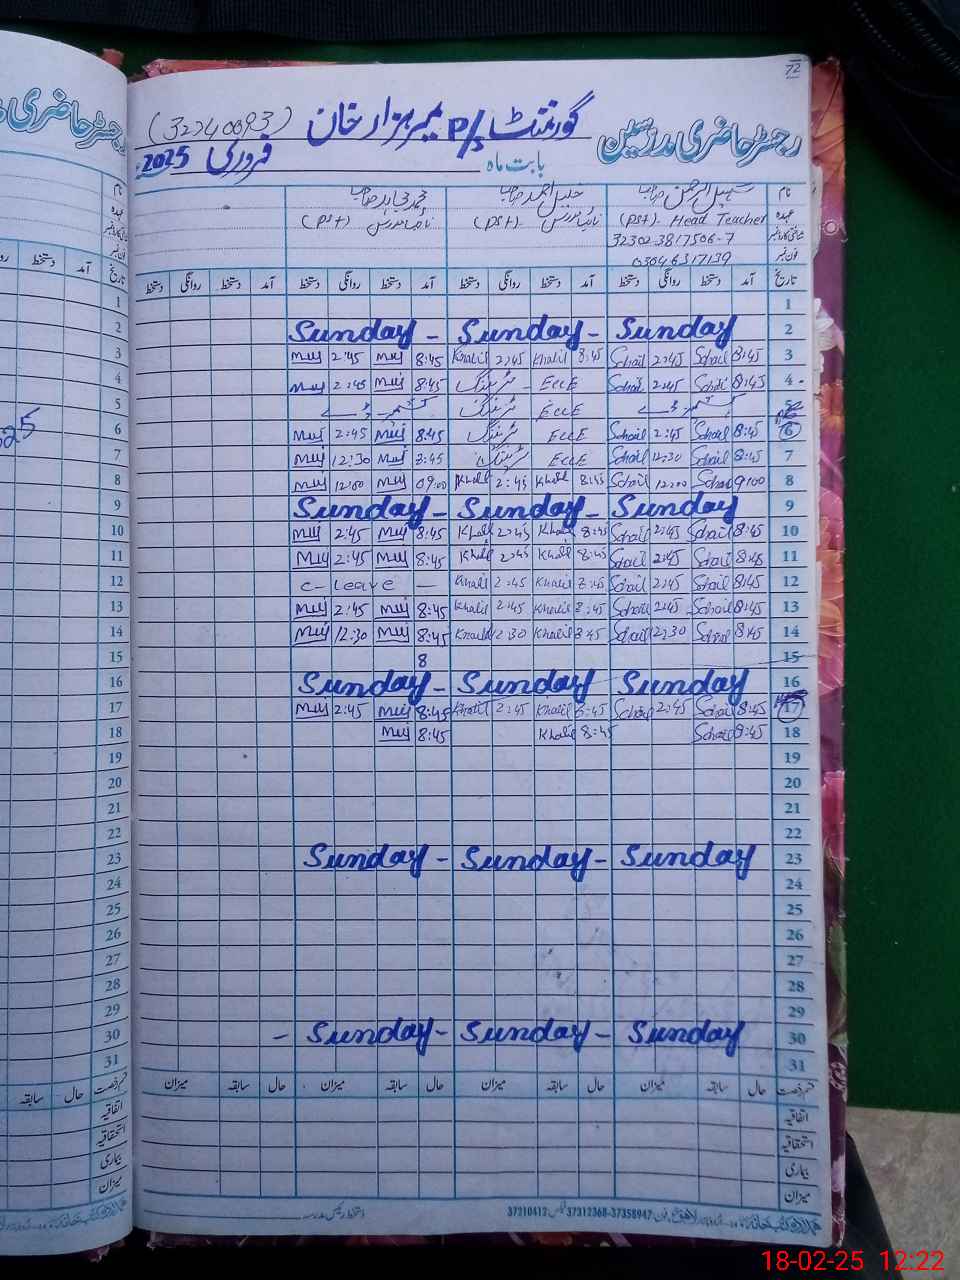 72
رجسٹر حاضری مدرسین گورنمنٹ P/S بمبر ہزار خان (32240093)
بابت ماہ فروری 2025
نام سہیل الرحمٰن صاحب خلیل احمد صاحب محمد مجاہد صاحب
عہدہ (PST). Head Teacher نائب مدرس (PST). نائب مدرس (PST)
شناختی کارڈ نمبر 32302-3817506-7
فون نمبر 03046317139
تاریخ آمد دستخط روانگی دستخط آمد دستخط روانگی دستخط آمد دستخط روانگی دستخط آمد دستخط روانگی دستخط
1
2 Sunday - Sunday - Sunday
3 8:45 Sohail 2:45 Sohail 8:45 Khalil 2:45 Khalil 8:45 Muj 2:45 Muj
4 8:45 Sohail 2:45 Sohail ECCE ٹریننگ 8:45 Muj 2:45 Muj
5 کشمیر ڈے ECCE ٹریننگ کشمیر ڈے
6 8:45 Sohail 2:45 Sohail ECCE ٹریننگ 8:45 Muj 2:45 Muj
7 8:45 Sohail 12:30 Sohail ECCE ٹریننگ 8:45 Muj 12:30 Muj
8 9:00 Sohail 12:00 Sohail 8:45 Khalil 2:45 Khalil 09:00 Muj 12:00 Muj
9 Sunday - Sunday - Sunday
10 8:45 Sohail 2:45 Sohail 8:45 Khalil 2:45 Khalil 8:45 Muj 2:45 Muj
11 8:45 Sohail 2:45 Sohail 8:45 Khalil 2:45 Khalil 8:45 Muj 2:45 Muj
12 8:45 Sohail 2:45 Sohail 8:45 Khalil 2:45 Khalil C-Leave —
13 8:45 Sohail 2:45 Sohail 8:45 Khalil 2:45 Khalil 8:45 Muj 2:45 Muj
14 8:45 Sohail 12:30 Sohail 8:45 Khalil 12:30 Khalil 8:45 Muj 12:30 Muj
15 8
16 Sunday - Sunday Sunday
17 8:45 Sohail 2:45 Sohail 8:45 Khalil 2:45 Khalil 8:45 Muj 2:45 Muj
18 8:45 Sohail 8:45 Khalil 8:45 Muj
19
20
21
22
23 Sunday - Sunday - Sunday
24
25
26
27
28
29
30 - Sunday - Sunday - Sunday
31
قسم رخصت حال سابقہ میزان حال سابقہ میزان حال سابقہ میزان حال سابقہ میزان
اتفاقیہ
استحقاقیہ
بیماری
میزان
دستخط رئیس مدرسہ
37310412 37312368-37358947
18-02-25 12:22